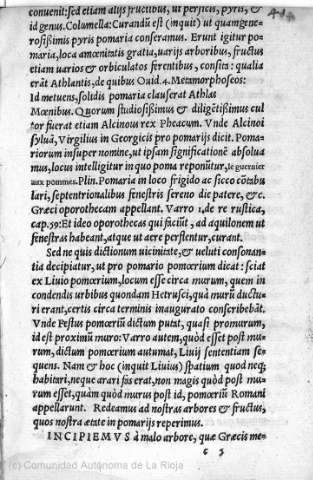 414
conuenit: sed etiam alijs fructibus, ut persicis, pyris, &
id genus. Columella: Curandũ est (inquit) ut quamgene-
rosißimis pyris pomaria conseramus. Erunt igitur po-
maria, loca amœnitatis gratia, uarijs arboribus, fructus
etiam uarios & orbiculatos ferentibus, consita: qualia
erãt Athlantis, de quibus Ouid. 4. Metamorphoseos:
Id metuens, solidis pomaria clauserat Athlas
Mœnibus. Quorum studiosißimus & diligẽtißimus cul
tor fuerat etiam Alcinous rex Pheacum. Vnde Alcinoi
syluã, Virgilius in Georgicis pro pomarijs dicit. Poma-
riorum insuper nomine, ut ipsam significationẽ absolua
mus, locus intelligitur in quo poma reponũtur, le guernier
aux pommes. Plin. Pomaria in loco frigido ac sicco cõtabu
lari, septentrionalibus fenestris sereno die patere, &c.
Græci oporothecam appellant. Varro 1. de re rustica,
cap. 59: Et ideo oporothecas qui faciũt, ad aquilonem ut
fenestras habeant, atque ut aere perflentur, curant.
Sed ne quis dictionum uicinitate, & ueluti consonan-
tia decipiatur, ut pro pomario pomœrium dicat: sciat
ex Liuio pomœrium, locum esse circa murum, quem in
condendis urbibus quondam Hetrusci, quà murũ ductu-
ri erant, certis circa terminis inaugurato conscribebãt.
Vnde Festus pomœriũ dictum putat, quasi promurum,
id est proximũ muro: Varro autem, quòd esset post mu-
rum, dictum pomœrium autumat, Liuij sententiam se-
quens. Nam & hoc (inquit Liuius) spatium quod neq;
habitari, neque arari fâs erat, non magis quòd post mu-
rum esset, quàm quòd murus post id, pomœriũ Romani
appellarunt. Redeamus ad nostras arbores & fructus,
quos nostra ætate in pomarijs reperimus.
INCIPIEMVS à malo arbore, quæ Græcis me-
c 5
(c) Comunidad Autónoma de La Rioja